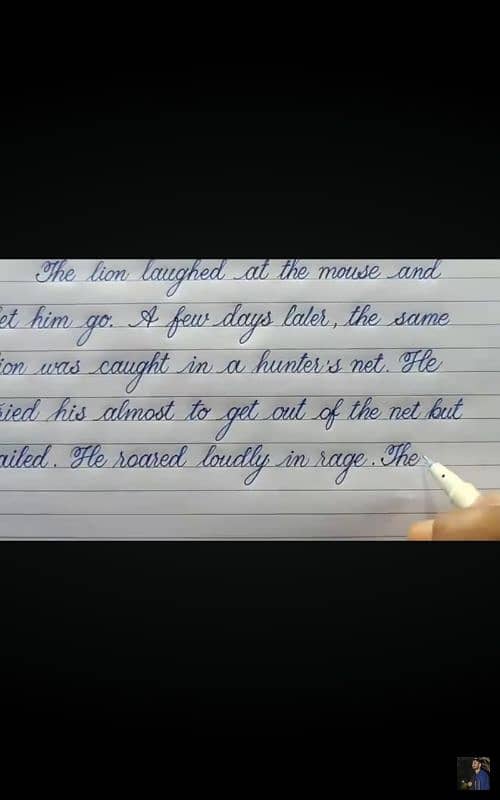 The lion laughed at the mouse and
et him go. A few days later, the same
ion was caught in a hunter's net. He
ried his almost to get out of the net but
ailed. He roared loudly in rage. The